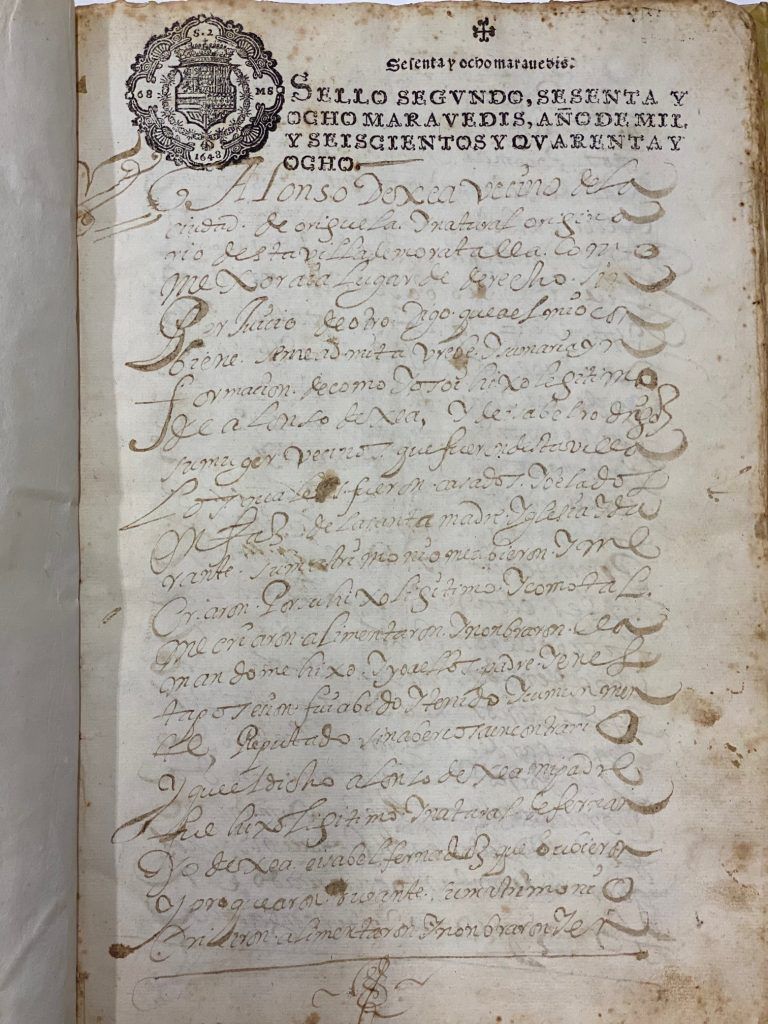 S. 2
68 MS
1648
Sesenta y ocho marauedis.
SELLO SEGVNDO, SESENTA Y
OCHO MARAVEDIS, AÑO DE MIL
Y SEISCIENTOS Y QVARENTA Y
OCHO.
Alonso Dexea Vecino dela
ciudad. de origuela. Y natural origina
rio desta villa de moratalla. Com
mexor aia lugar de derecho. sin
Per Juicio de otro Digo. que a el mio
biene se me admita Vnᵃ sumaria yn
formacion. de como yo soi hixo legitimo
de alonso de xea, y de isabel rodriguez
su muger Vecinos que fueron desta villa
Los quales. fueron casados. Y velados
en faz de la santa madre. Yglesia Y du
rante su matrimonio me ubieron. Y me
Criaron. Por su hixo legitimo. Y como tal.
me criaron alimentaron. Y nonbraron. lla
mandome hixo. Y yo a ellos padre. Y en es
ta posesion. fui abido Y tenido Y comunmen
te, Reputado sin aber cosa en contrario
Y que el dicho alonso de xea mi padre
fue hixo legitimo. Y natural de fernan
do de xea. e isabel fernandez que lo ubieron
Y procrearon. durante. su matrimonio
Criaron. alimentaron Y nonbraron